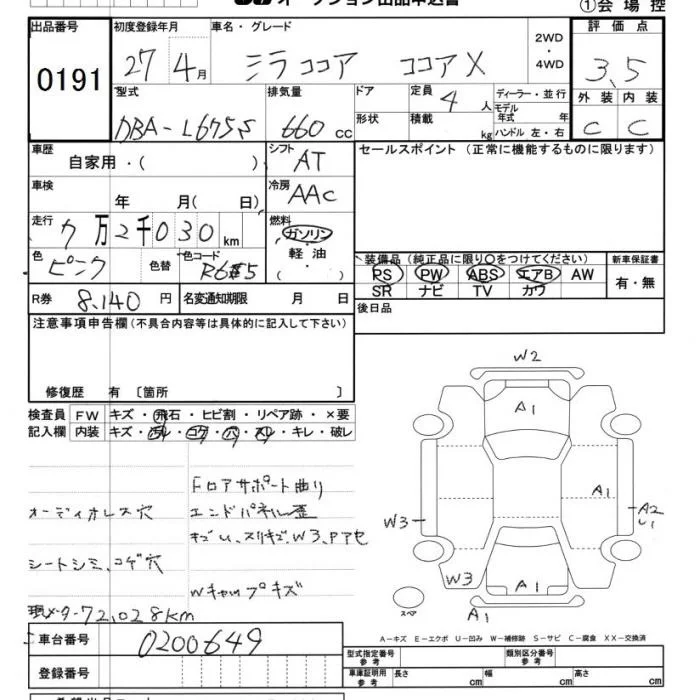 ①会場控
出品番号 初度登録年月 車名・グレード 2WD ・ 4WD 評価点
0191 27年4月 ミラココア ココアX 3.5
型式 排気量 ドア 定員 4人 ディーラー・並行 外装 内装
DBA-L675S 660cc 形状 積載 kg モデル年式 年 ハンドル 左・右 C C
車歴 自家用・( ) シフト AT セールスポイント(正常に機能するものに限ります)
車検 年 月( 日) 冷房 AAC
走行 7万2千030km 燃料 ガソリン・軽油・( )
色 ピンク 色替 色コード 装備品(純正品に限り○をつけてください) 新車保証書
PS PW ABS エアB AW 有・無
SR ナビ TV カワ
R券 8,140円 名変通知期限 月 日 後日品
注意事項申告欄(不具合内容等は具体的に記入して下さい)
修復歴 有〔箇所 〕
検査員 FW キズ・飛石・ヒビ割・リペア跡・×要
記入欄 内装 キズ・汚れ・コゲ・穴・スレ・キレ・破レ
W2
A1
Fロアサポート曲り
オーディオレス穴 エンドパネル歪
A1
A2
U1
W3
キズU、スリキズ、W3、Pアセ
シートシミ、コゲ穴
W3
A1
Wキャップキズ
A1
スペア
現メーター72,028km
A-キズ E-エクボ U-凹み W-補修跡 S-サビ C-腐食 XX-交換済
車台番号 0200649 型式指定番号 参考 類別区分番号 参考
登録番号 車庫証明用 参考 長さ cm 幅 cm 高さ cm